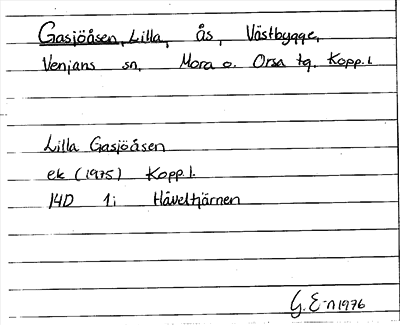 Gasjöåsen, Lilla, ås, Västbygge,
Venjans sn, Mora o. Orsa tg. Kopp.l.
Lilla Gasjöåsen
ek (1975) Kopp.l.
14D 1i Håveltjärnen
G. E-n 1976